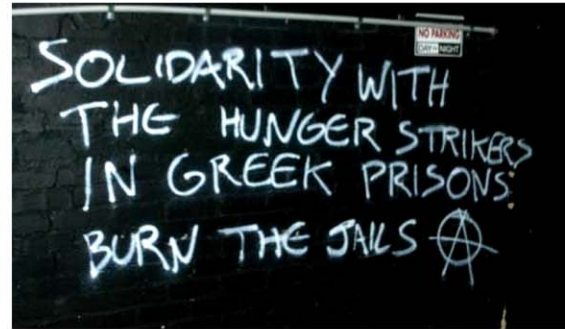 NO PARKING
DAY - NIGHT
SOLIDARITY WITH
THE HUNGER STRIKERS
IN GREEK PRISONS
BURN THE JAILS